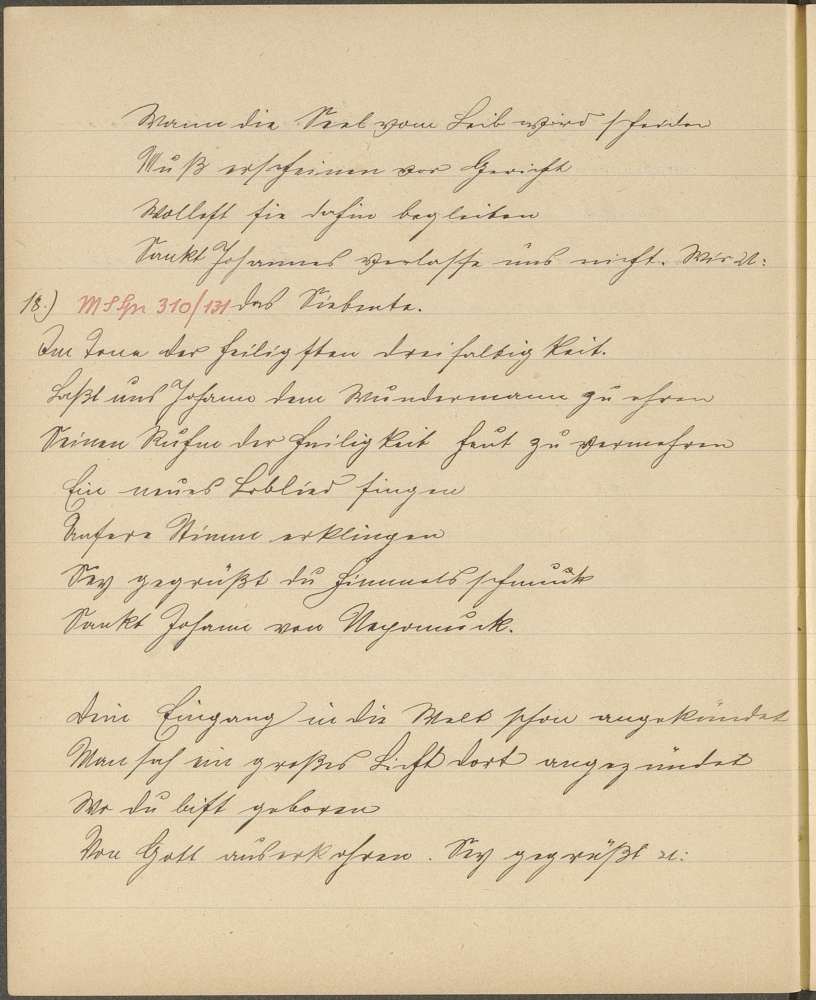 Wann die Seel vom Leib wird scheiden
Muß erscheinen vor Gericht
Wollest sie dahin begleiten
Sankt Johannes verlasse uns nicht. Wir &:
18.) 310/131 Das Siebente.
Im Tone der heiligsten Dreifaltigkeit.
Laßt uns Johann dem Wundermann zu ehren
Seinen Ruhm der Heiligkeit heut zu vermehren
Ein neues Loblied singen
Unsere Stimm erklingen
Sey gegrüßt du Himmelsschmuck
Sankt Johann von Nepomuck.
Dein Eingang in die Welt schon angekündet
Man sah ein großes Licht dort angezündet
Wo du bist geboren
Von Gott auserkohren. Sey gegrüßt &: